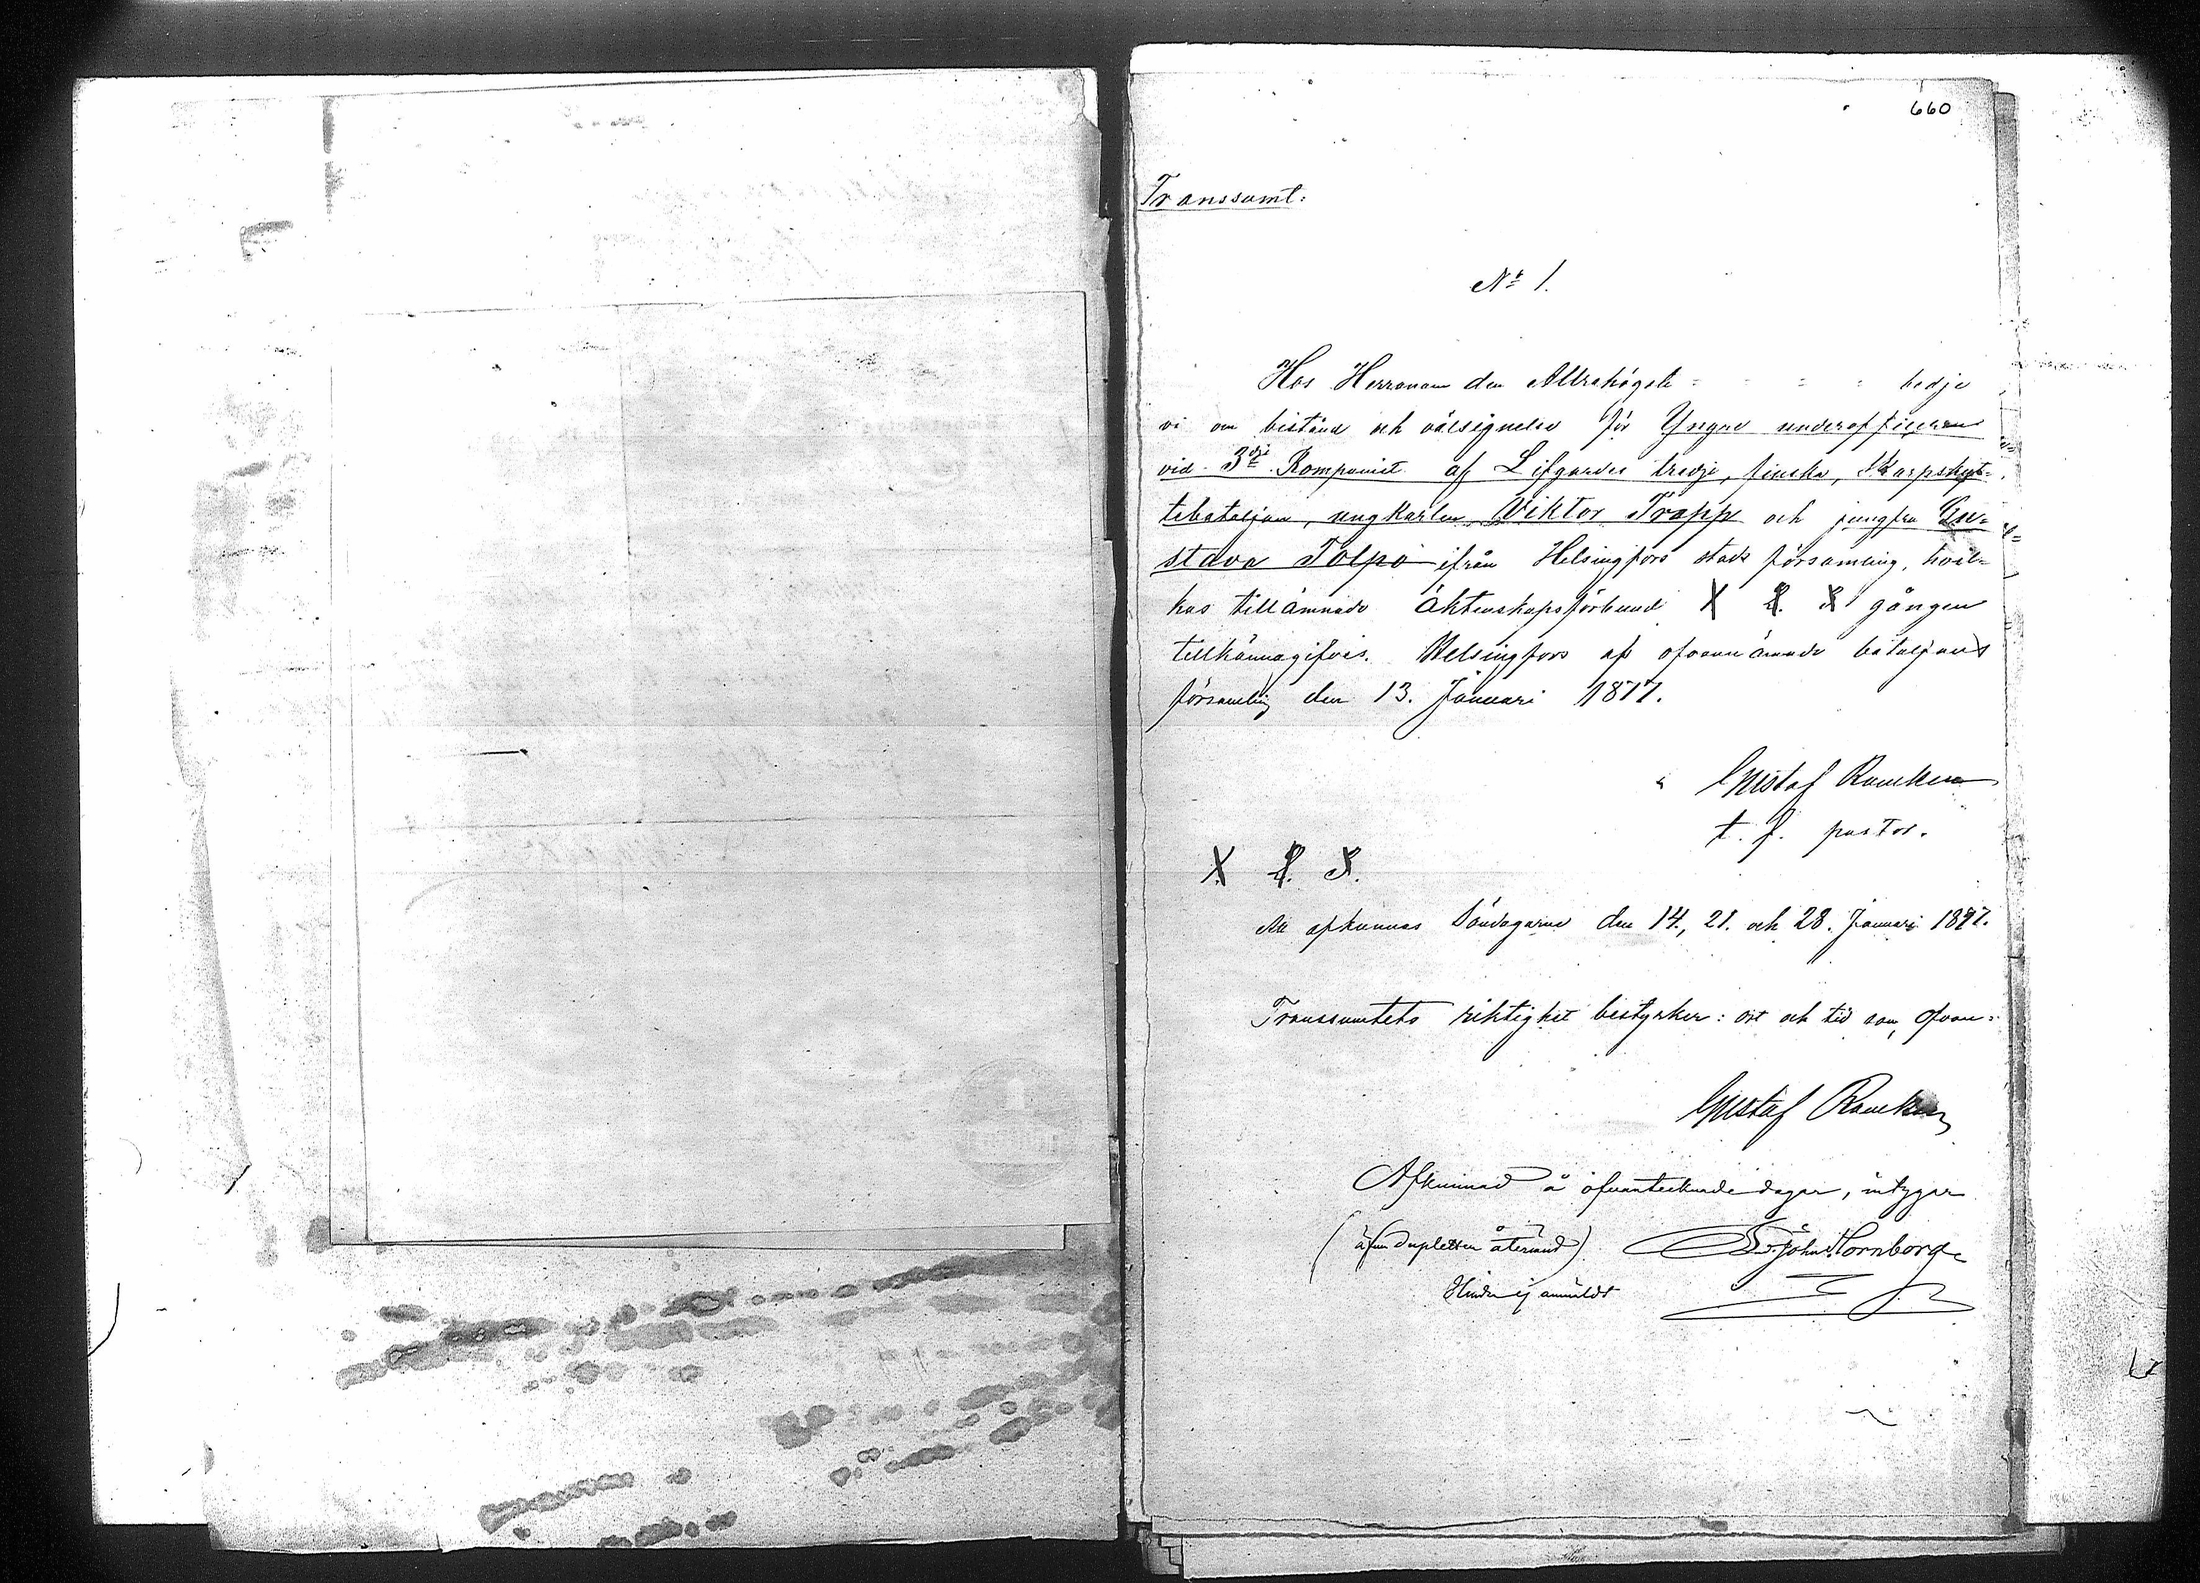 660
Transsumt:
No 1.
Hos Herranom den Allrahögste - - - - bedje
vi om bistånd och välsignelse för Yngre underofficeren
vid 3dje Kompaniet af Lifgardes tredje, finska, Skarpskyt=
tebataljon, ungkarlen Viktor Trapp och jungfru Gu=
stava Tolpo ifrån Helsingfors stads församling, hvil=
kas tillämnade äktenskapsförbund X 2. 3 gången
tillkännagifves. Helsingfors af ofvannämnde bataljons
församling den 13. Januari 1877.
Gustaf Rancken
t. f. pastor.
X 2. 3.
Att afkunnas Söndagarne den 14., 21. och 28. Januari 1877.
Transsumtets riktighet bestyrker: ort och tid som ofvan:
Gustaf Rancken
Afkunnad å ofvanteckande dagar, intygar
(äfven dupletten återsänd) John Hornborg
Hinder ej anmäldt